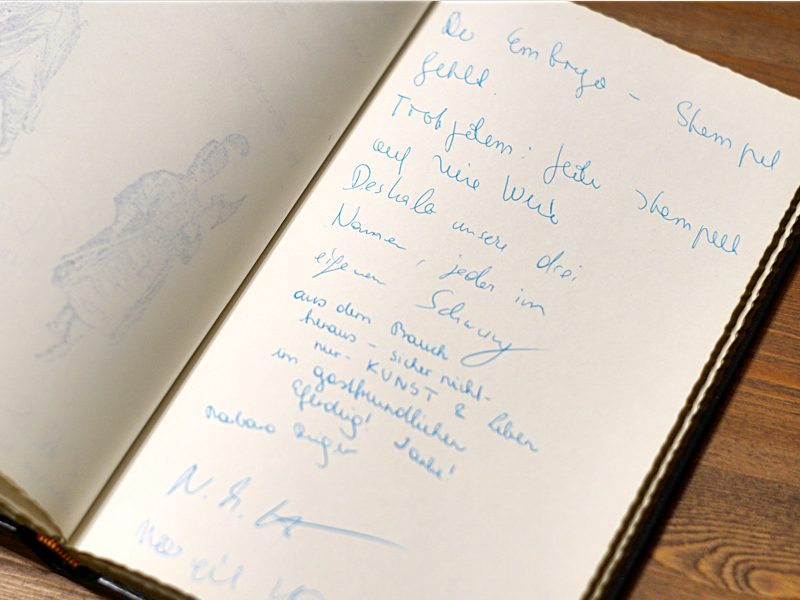 Der Embryo - Stempel
fehlt.
Trotzdem: jeder stempelt
auf seine Weise
Deshalb unsere drei
Namen, jeder im
eigenen Schwung
aus dem Bauch
heraus - sicher nicht
nur - KUNST & Leben
im gastfreundlichen
Eferding! Danke!